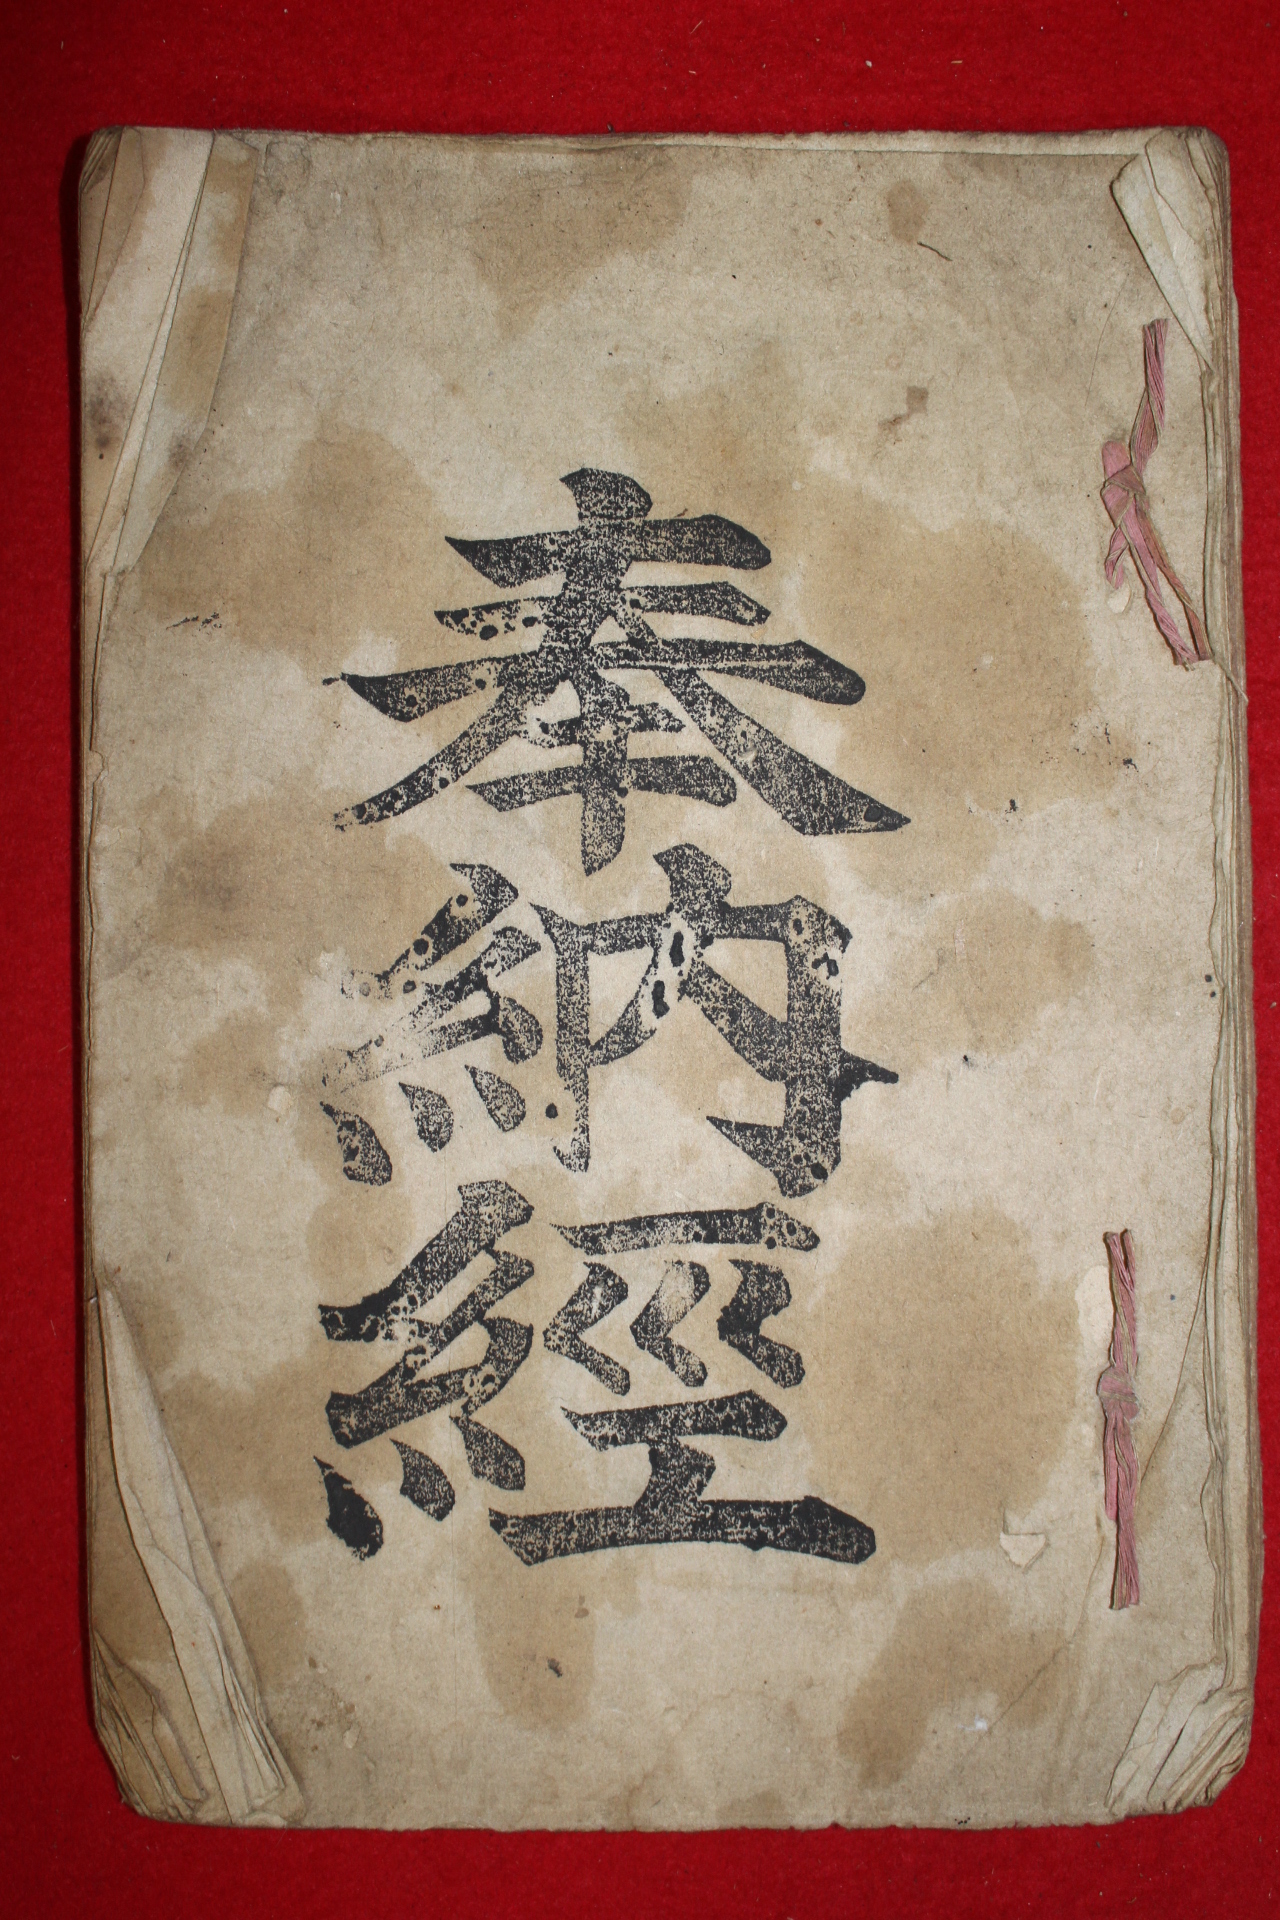 奉納經